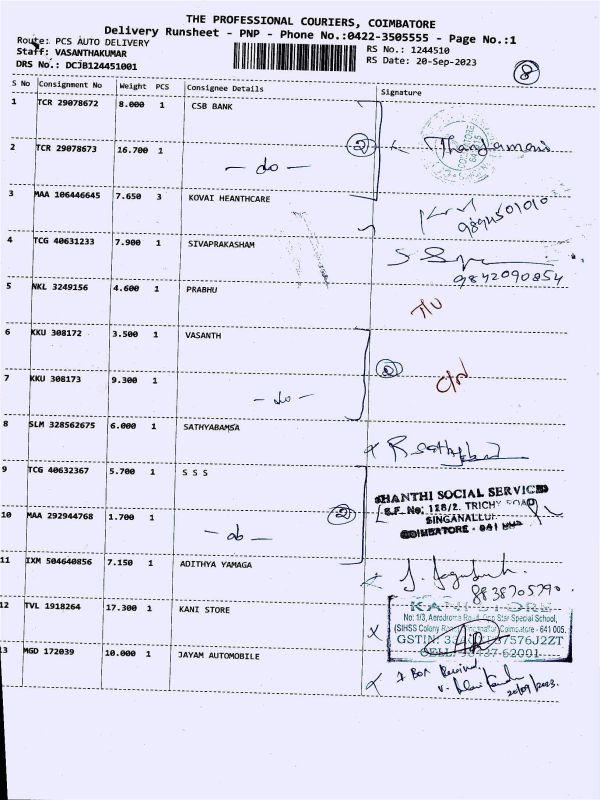 THE PROFESSIONAL COURIERS, COIMBATORE
Delivery Runsheet - PNP - Phone No.:0422-3505555 - Page No.:1
Route: PCS AUTO DELIVERY
Staff: VASANTHAKUMAR
DRS No.: DCJB124451001
RS No.: 1244510
RS Date: 20-Sep-2023
8
S No Consignment No Weight PCS Consignee Details Signature
1 TCR 29078672 8.000 1 CSB BANK
2 TCR 29078673 16.700 1 - do - 2 Thangamani
3 MAA 106446645 7.650 3 KOVAI HEANTHCARE
9894501010
4 TCG 40631233 7.900 1 SIVAPRAKASHAM
9842090854
5 NKL 3249156 4.600 1 PRABHU
6 KKU 308172 3.500 1 VASANTH
7 KKU 308173 9.300 1 - do - 2
8 SLM 328562675 6.000 1 SATHYABAMSA
R Sathyabama
9 TCG 40632367 5.700 1 S S S
SHANTHI SOCIAL SERVICES
S.F. No: 118/2. TRICHY ROAD
SINGANALLUR
COIMBATORE - 641
10 MAA 292944768 1.700 1 - do - 2
11 IXM 504640856 7.150 1 ADITHYA YAMAGA
8838705790
12 TVL 1918264 17.300 1 KANI STORE
KANI STORE
No: 1/3, Aerodrome Road, Opp Star Special School,
(SIHSS Colony Road) Singanallur Coimbatore - 641 005.
GSTIN: 7576J2ZT
CELL: 37-62001
13 MGD 172039 10.000 1 JAYAM AUTOMOBILE
1 Box Received
20/09/2023.